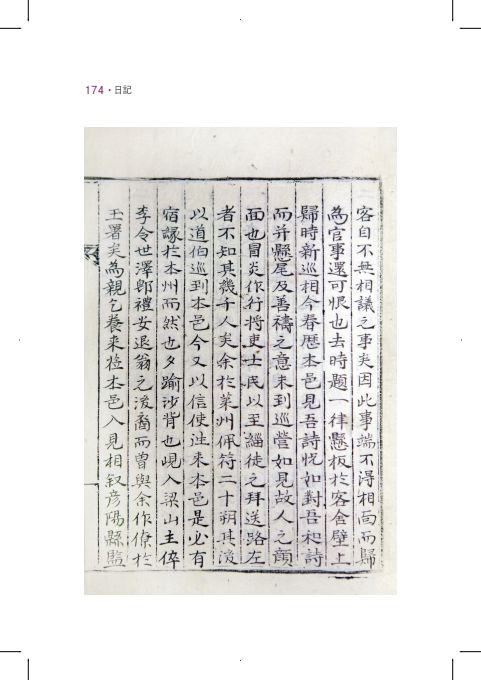 174 · 日記
客自不無相議之事矣因此事端不得相面而歸
為官事還可恨也去時題一律懸板於客舍壁上
歸時新巡相今春歷本邑見吾詩恍如對吾和詩
而并懸尾及善禱之意未到巡營如見故人之顔
面也冒炎作行將吏士民以至緇徒之拜送路左
者不知其幾千人矣余於萊州佩符二十朔其後
以道伯巡到本邑今又以信使往來本邑是必有
宿緣於本州而然也夕踰沙背也峴入梁山主倅
李令世澤郵禮安退翁之後裔而曽與余作僚於
玉署矣為親乞養來莅本邑入見相叙彦陽縣監